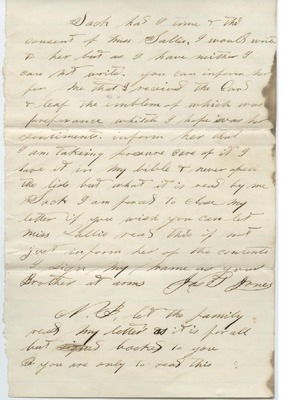 Sack had I time & the
consent of Miss Sallie, I would write
to her but as I have neither I
can not write. you can inform her
for me that I received the Card
& leaf the emblem of which was
preferance which I hope was her
sentiments. inform her that
I am takeing care of it I
have it in my bible & never open
the lids but what it is read by me
Sack I am forced to close my
letter if you wish you can let
Miss Sallie read this if not
just inform her of the contents
Sign my name as your
Brother at arms Jas Jones
N. B, let the family
read my letter as it is for all
but backed to you
you are only to read this